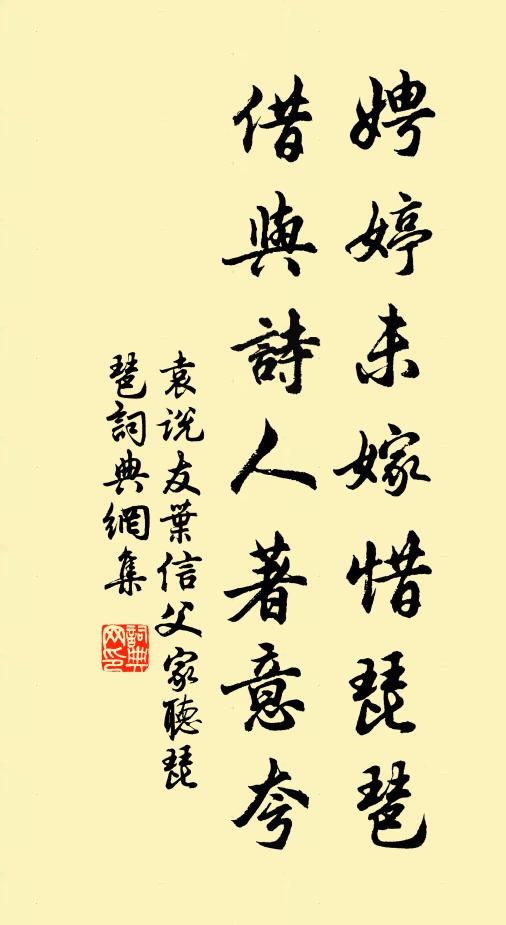 娉婷未嫁惜琵琶
借與詩人著意夸
袁说友葉信父家聽琵
琶詞典網集
詞典
网印